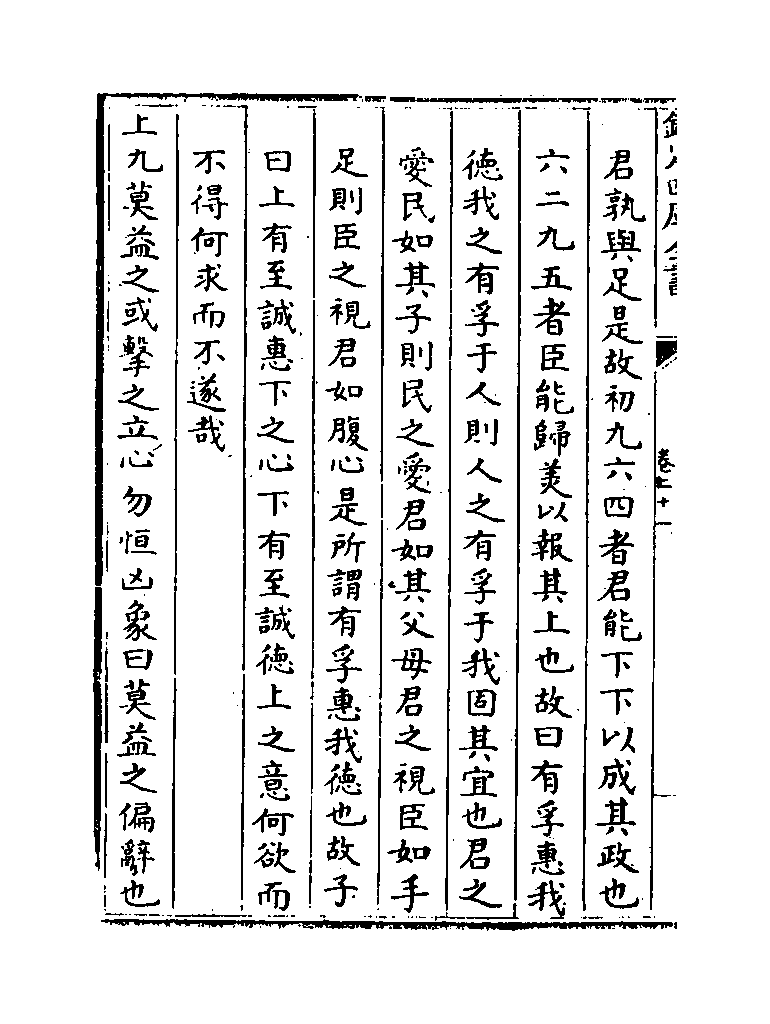 欽定四庫全書
卷七十一
君孰與足是故初九六四者君能下下以成其政也
六二九五者臣能歸美以報其上也故曰有孚惠我
德我之有孚于人則人之有孚于我固其宜也君之
愛民如其子則民之愛君如其父母君之視臣如手
足則臣之視君如腹心是所謂有孚惠我德也故子
曰上有至誠惠下之心下有至誠德上之意何欲而
不得何求而不遂哉
上九莫益之或擊之立心勿恒凶象曰莫益之偏辭也